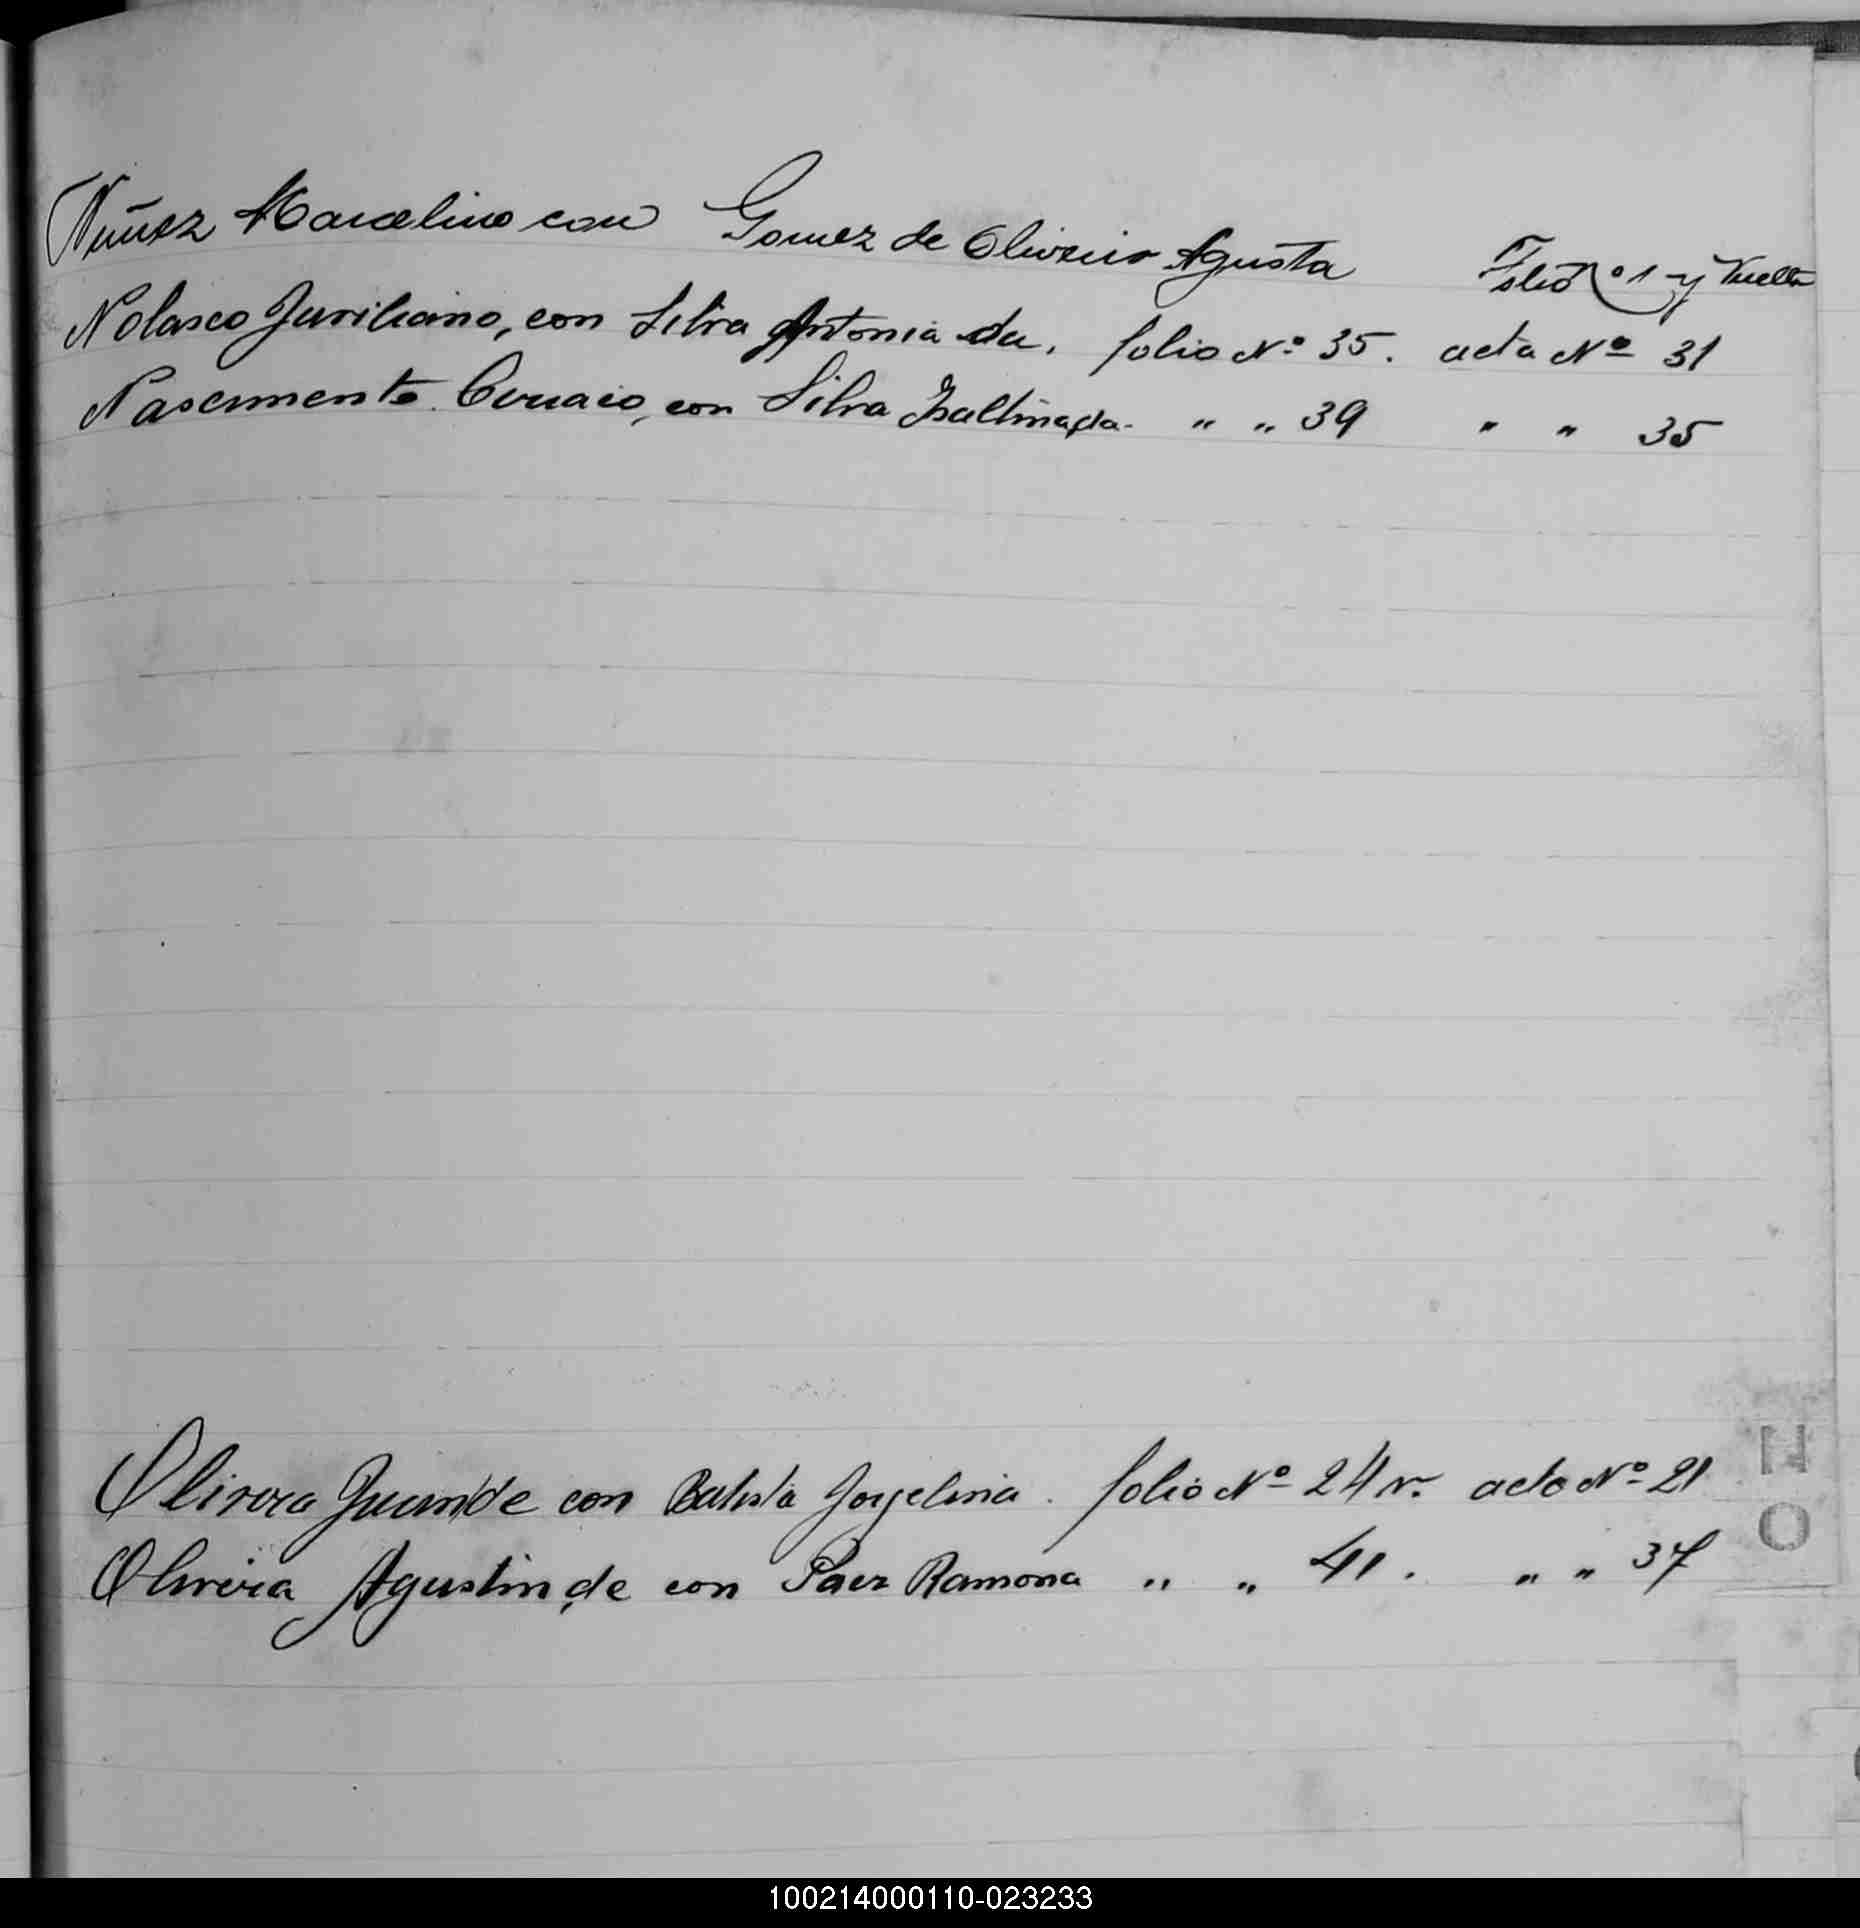 Núñez Marcelino con Gomez de Oliveira Agusta Folio Nº 1 y Vuelta
Nolasco Juriliano, con Silva Antonia da. folio Nº 35. acta Nº 31
Nascimento con Silva Isaltina da. " " 39 " " 35
Olivera Juan de con Batista Jorgelina. folio Nº 24 v. acta Nº 21
Oliveira Agustin de con Paez Ramona " " 41. " " 37
N
O
100214000110-023233